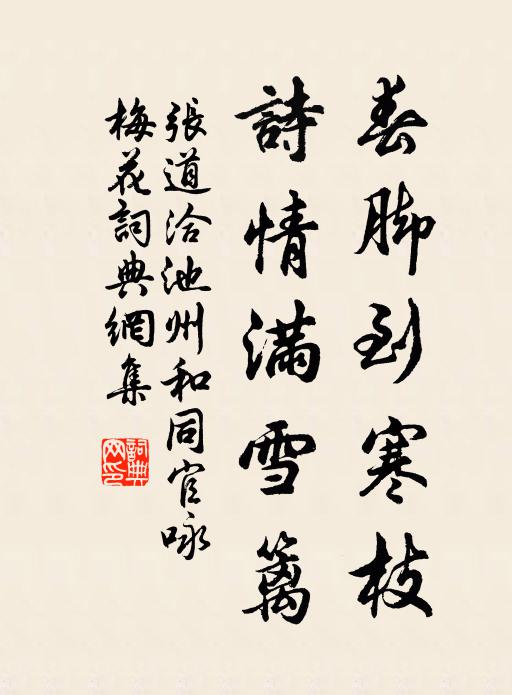 春脚到寒枝
詩情滿雪篱
張道洽池州和同官咏
梅花詞典網集
詞典網印